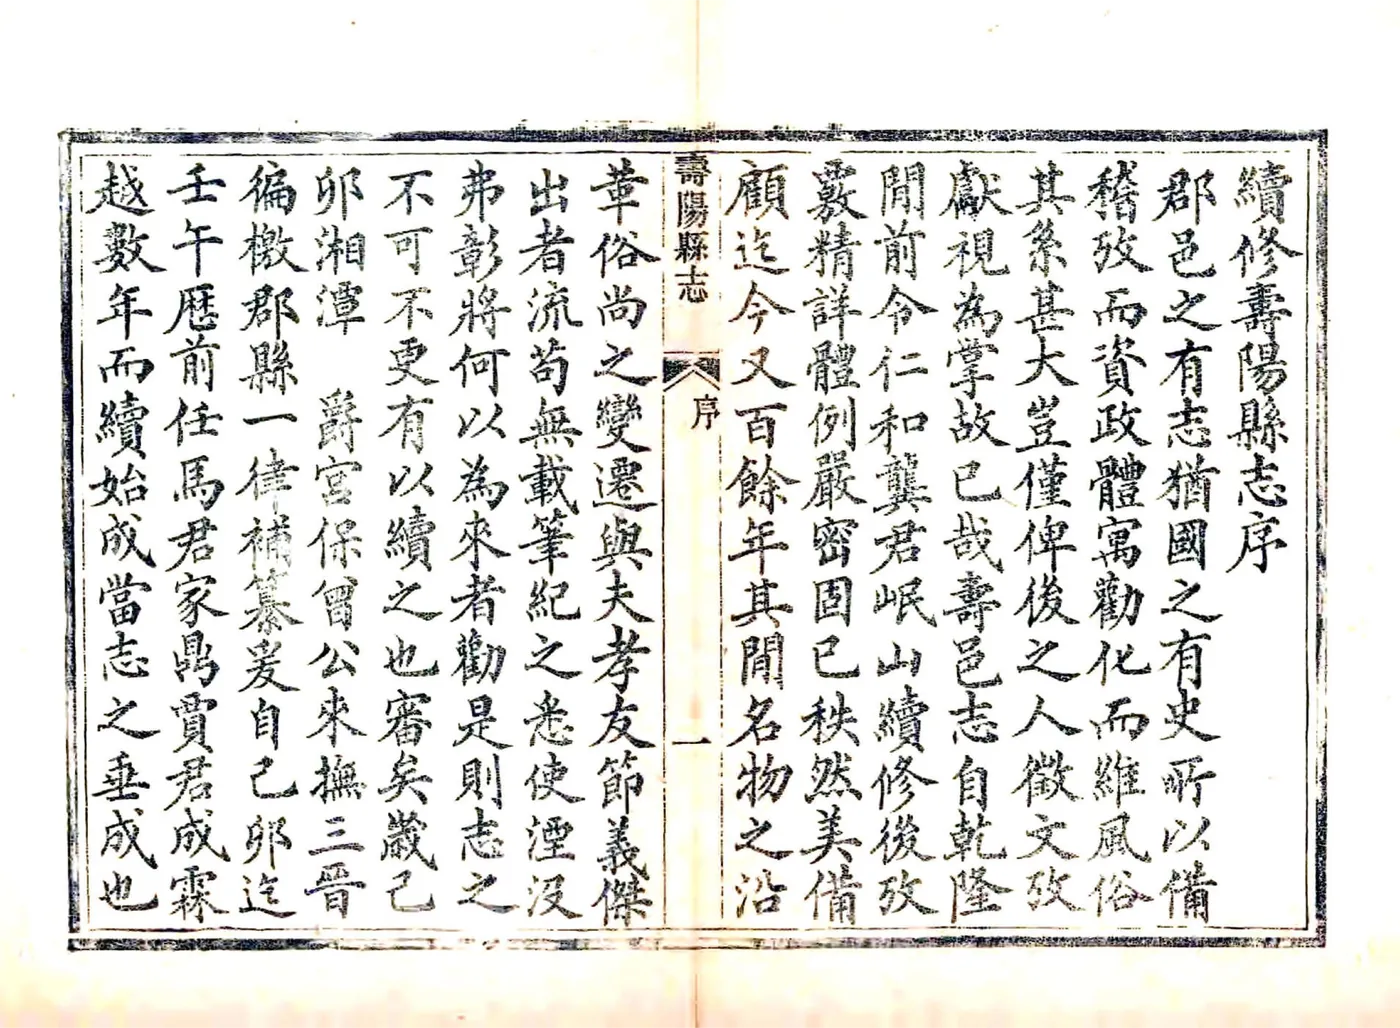 續修壽陽縣志序
郡邑之有志猶國之有史所以備
稽攷而資政體寓勸化而維風俗
其系甚大豈僅俾後之人徵文攷
獻視為掌故已哉壽邑志自乾隆
閒前令仁和龔君岷山續修後攷
覈精詳體例嚴密固已秩然美備
顧迄今又百餘年其閒名物之沿
壽陽縣志
序
一
革俗尚之變遷與夫孝友節義傑
出者流苟無載筆紀之悉使湮沒
弗彰將何以為來者勸是則志之
不可不更有以續之也審矣歲己
卯湘潭 爵宮保曾公來撫三晉
徧檄郡縣一律補纂爰自己卯迄
壬午歷前任馬君家鼎賈君成霖
越數年而續始成當志之垂成也